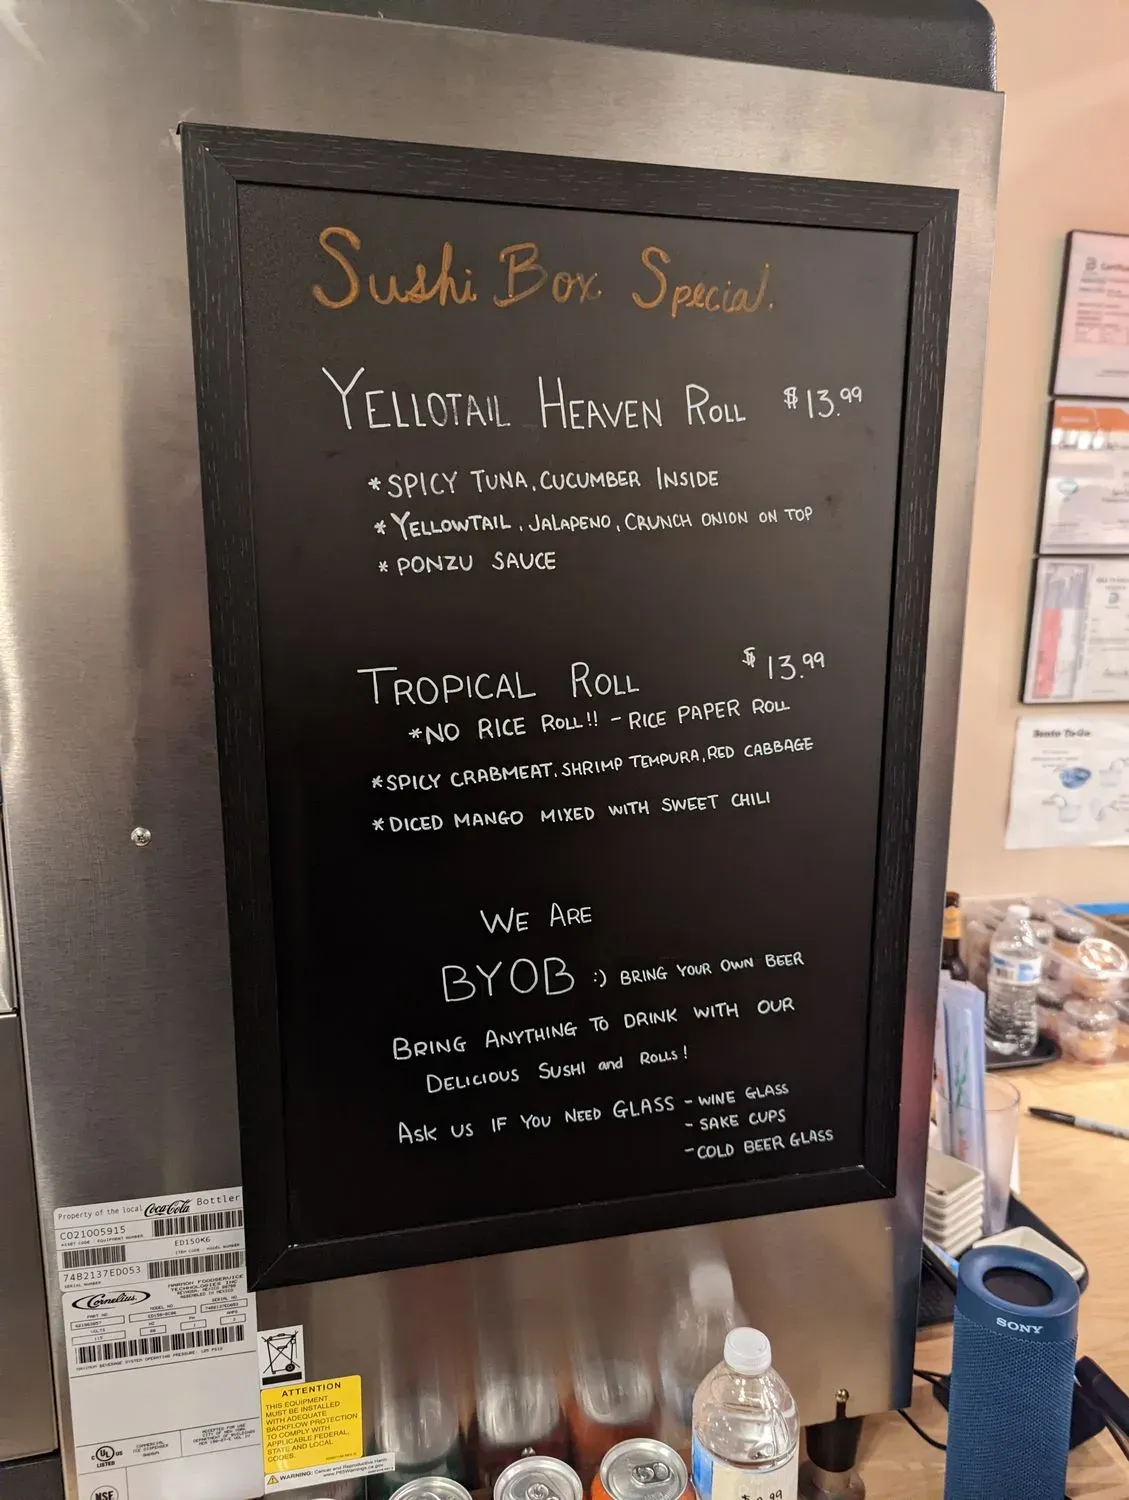 Sushi Box Special.
YELLOTAIL HEAVEN ROLL $13.99
*SPICY TUNA, CUCUMBER INSIDE
*YELLOWTAIL, JALAPENO, CRUNCH ONION ON TOP
*PONZU SAUCE
TROPICAL ROLL $13.99
*NO RICE ROLL!! - RICE PAPER ROLL
*SPICY CRABMEAT, SHRIMP TEMPURA, RED CABBAGE
*DICED MANGO MIXED WITH SWEET CHILI
WE ARE
BYOB :) BRING YOUR OWN BEER
BRING ANYTHING TO DRINK WITH OUR
DELICIOUS SUSHI and ROLLS!
ASK US IF YOU NEED GLASS - WINE GLASS
- SAKE CUPS
- COLD BEER GLASS
Property of the local Coca-Cola Bottler
C021005915
ED150K6
74B2137ED053
Cornelius
ATTENTION
THIS EQUIPMENT
MUST BE INSTALLED
WITH ADEQUATE
BACKFLOW PROTECTION
TO COMPLY WITH
APPLICABLE FEDERAL,
STATE AND LOCAL
CODES.
WARNING: Cancer and Reproductive Harm
www.P65Warnings.ca.gov
UL US
LISTED
NSF
Bento To-Go
SONY